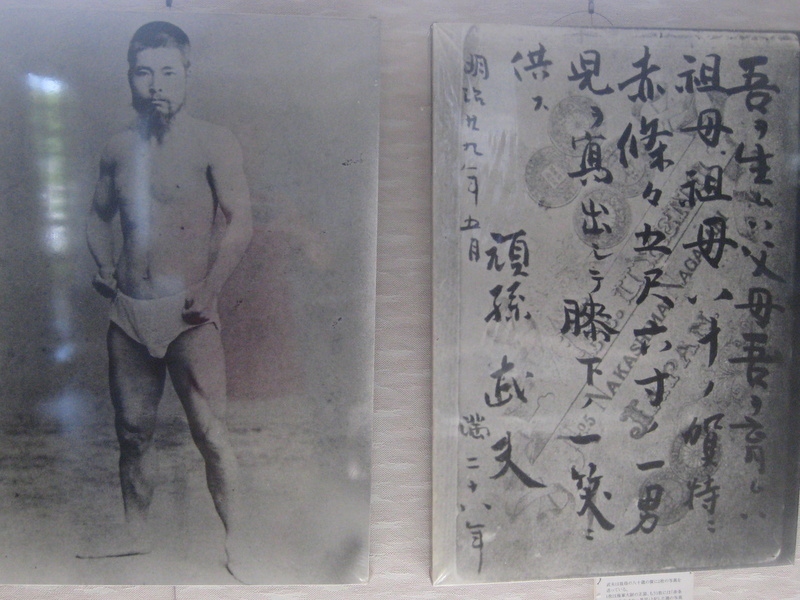 吾ヲ生ムハ父母吾ヲ育シハ
祖母祖母八十ノ賀特ニ
赤條々五尺六寸ノ一男
児ヲ寫出シテ膝下ノ一笑ニ
供ス
頑孫武夫 満二十八年
明治廿九年五月
NAKASHIMA
JAPAN